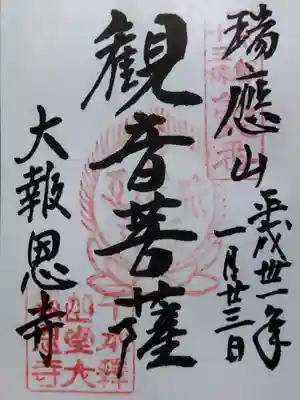 瑞應山
平成丗一年
一月廿三日
観音菩薩
大報恩寺